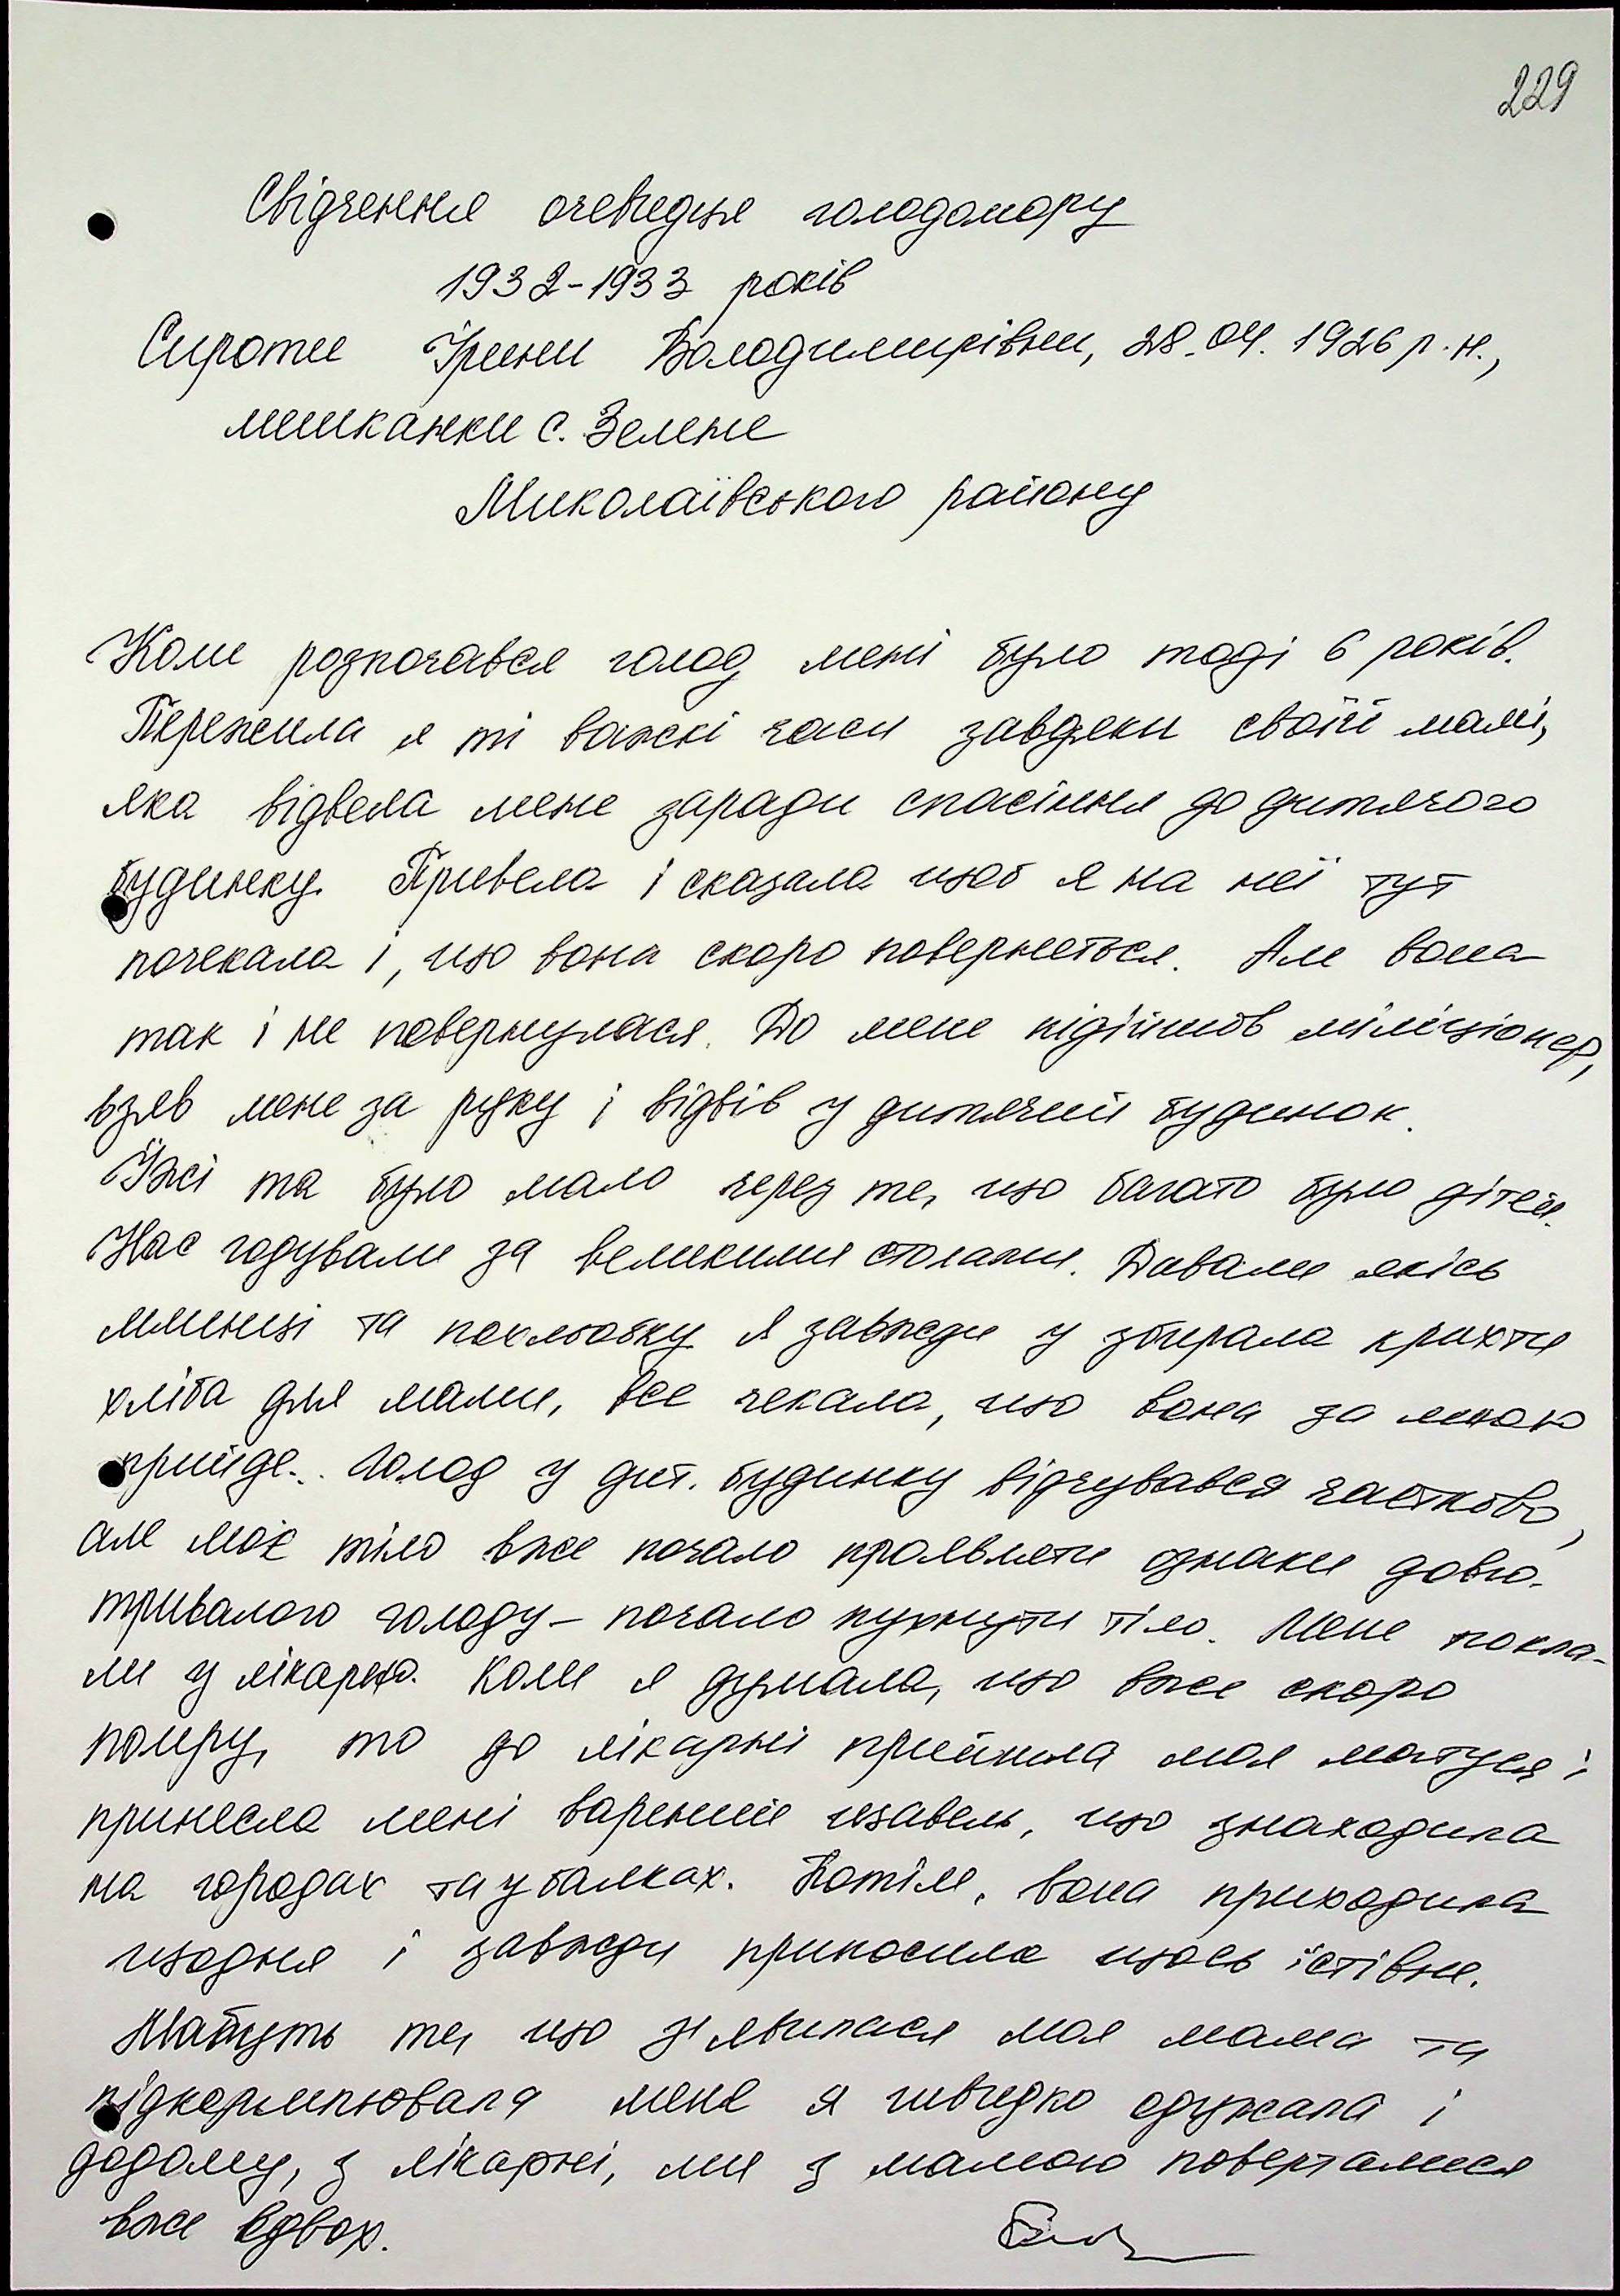 229
Свідчення очевидця голодомору
1932-1933 років
Сироти Ірини Володимирівни, 28.04.1926 р.н.,
мешканки с. Зелене
Миколаївського району
Коли розпочався голод мені було тоді 6 років.
Пережила я ті важкі часи завдяки своїй мамі,
яка відвела мене заради спасіння до дитячого
будинку. Привела і сказала щоб я на неї тут
почекала і, що вона скоро повернеться. Але вона
так і не повернулася. До мене підійшов міліціонер,
взяв мене за руку і відвів у дитячий будинок.
Їжі та було мало через те, що багато було дітей.
Нас годували за великими столами. Давали якісь
млинці та похльобку. Я завжди у збирала крихти
хліба для мами, все чекала, що вона за мною
прийде.. Голод у дит. будинку відчувався частково,
але моє тіло вже почало проявляти ознаки довго-
тривалого голоду – почало пухнути тіло. Мене покла-
ли у лікарню. Коли я думала, що вже скоро
помру, то до лікарні прийшла моя матуся і
принесла мені варений щавель, що знаходила
на городах та у балках. Потім, вона приходила
щодня і завжди приносила щось їстівне.
Мабуть те, що з'явилася моя мама та
підкормлювала мене я швидко одужала і
додому, з лікарні, ми з мамою поверталися
вже вдвох.